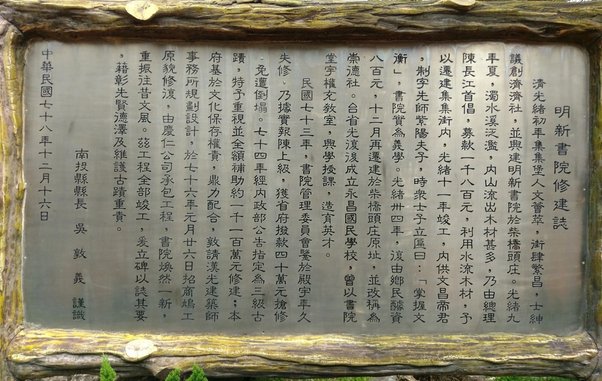 明新書院修建誌
清光緒初年集集堡人文薈萃，街肆繁昌，士紳
議創濟濟社，並興建明新書院於柴橋頭庄。光緒九
年夏，濁水溪泛濫，內山流出木材甚多，乃由總理
陳長江首倡，募款一千八百元，利用水流木材，予
以遷建集集街內，光緒十一年竣工，內供文昌帝君
，制字先師紫陽夫子，時眾士子立匾曰：「掌握文
衡」，書院實為義學。光緒卅四年，復由鄉民醵資
八百元，十二月再遷建於柴橋頭庄原址，並改稱為
崇德社。台省光復後成立永昌國民學校，曾以書院
堂宇權充教室，興學授課，造育英才。
民國七十三年，書院管理委員會鑒於殿宇年久
失修，乃據實報陳上級，獲省府撥款四十萬元搶修
，免遭倒塌。七十四年經內政部公告指定為三級古
蹟，特予重視並全額補助約一千一百萬元修建；本
府基於文化保存權責，鼎力配合，敦請漢光建築師
事務所規劃設計，於七十六年元月廿六日招商鳩工
原貌修復，由慶仁公司承包工程，書院煥然一新，
重振往昔文風。茲工程全部竣工，爰立碑以誌其要
，藉彰先賢德澤及維護古蹟重責。
南投縣縣長 吳敦義 謹識
中華民國七十八年十二月十六日